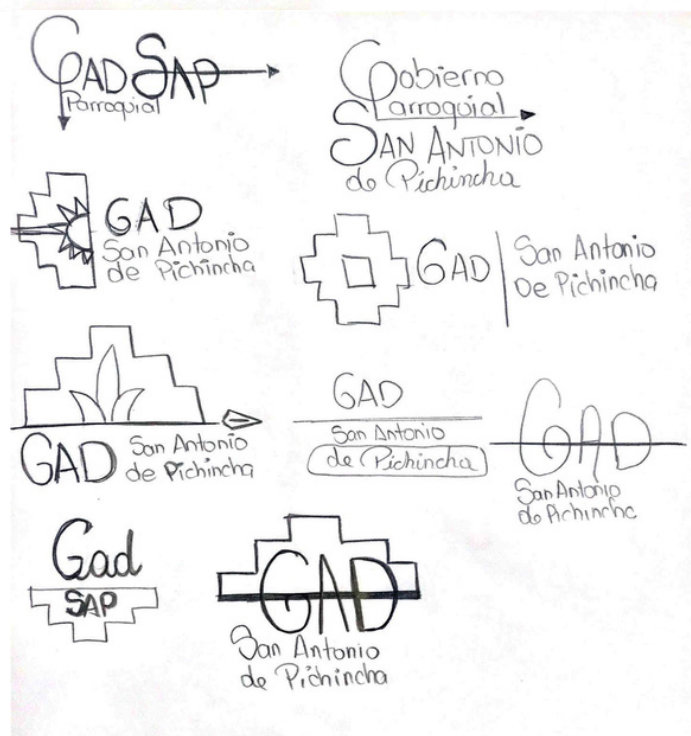 GAD SAP
Parroquial
Gobierno
Parroquial
SAN ANTONIO
de Pichincha
GAD
San Antonio
de Pichincha
GAD
San Antonio
De Pichincha
GAD
San Antonio
de Pichincha
GAD
San Antonio
de Pichincha
GAD
San Antonio
de Pichincha
Gad
SAP
GAD
San Antonio
de Pichincha